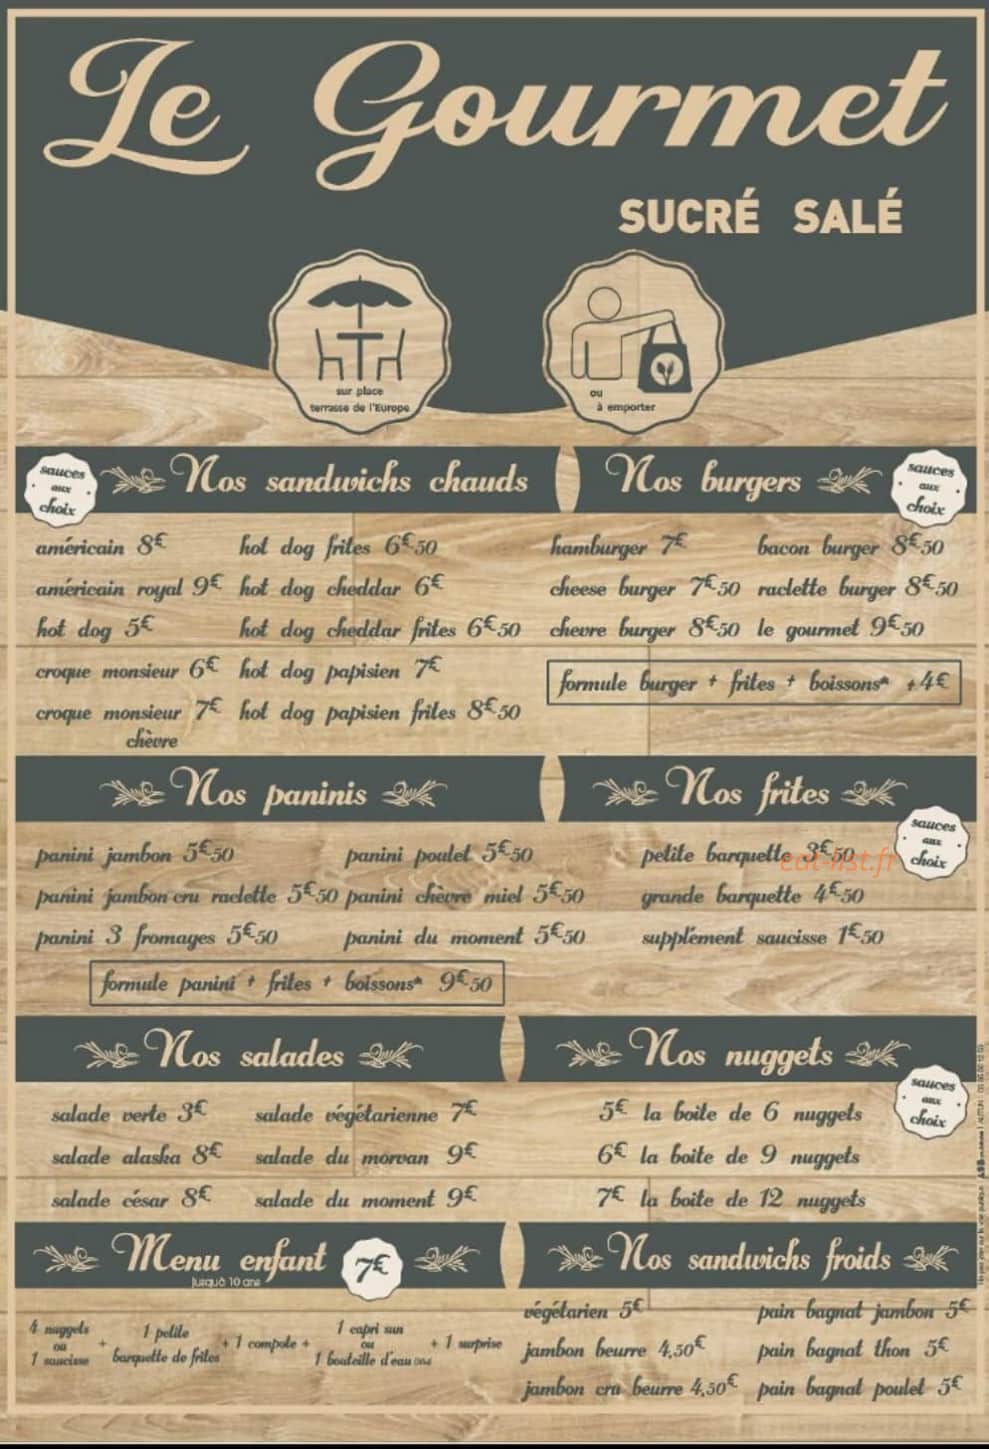 Le Gourmet
SUCRÉ SALÉ
sur place
terrasse de l'Europe
ou
à emporter
sauces
aux
choix
Nos sandwichs chauds
américain 8€
hot dog frites 6€50
américain royal 9€
hot dog cheddar 6€
hot dog 5€
hot dog cheddar frites 6€50
croque monsieur 6€
hot dog papisien 7€
croque monsieur 7€
chèvre
hot dog papisien frites 8€50
Nos burgers
sauces
aux
choix
hamburger 7€
bacon burger 8€50
cheese burger 7€50
raclette burger 8€50
chevre burger 8€50
le gourmet 9€50
formule burger + frites + boissons* +4€
Nos paninis
panini jambon 5€50
panini poulet 5€50
panini jambon cru raclette 5€50
panini chèvre miel 5€50
panini 3 fromages 5€50
panini du moment 5€50
formule panini + frites + boissons* 9€50
Nos frites
sauces
aux
choix
petite barquette 3€50
eat-list.fr
grande barquette 4€50
supplément saucisse 1€50
Nos salades
salade verte 3€
salade végétarienne 7€
salade alaska 8€
salade du morvan 9€
salade césar 8€
salade du moment 9€
Nos nuggets
sauces
aux
choix
5€ la boite de 6 nuggets
6€ la boite de 9 nuggets
7€ la boite de 12 nuggets
Menu enfant 7€
jusquà 10 ans
4 nuggets
ou
1 saucisse
+
1 petite
barquette de frites
+ 1 compote +
1 capri sun
ou
1 bouteille d'eau
+ 1 surprise
Nos sandwichs froids
végétarien 5€
pain bagnat jambon 5€
jambon beurre 4,50€
pain bagnat thon 5€
jambon cru beurre 4,50€
pain bagnat poulet 5€